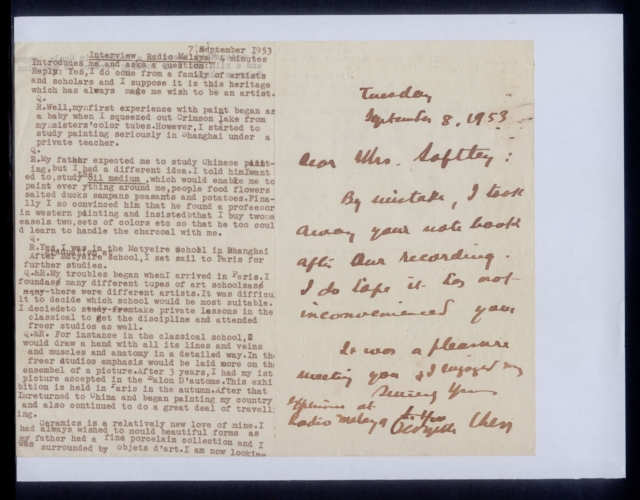 7 September 1953
Interview Radio Malaya minutes
Introduces me and asks a question
Reply: Yes,I do come from a family of artists
and scholars and I suppose it is this heritage
which has always made me wish to be an artist.
Q.
R.Well,my first experience with paint began as
a baby when I squeezed out Crimson Lake from
my sisters'color tubes.However,I started to
study painting seriously in Shanghai under a
private teacher.
Q.
R.My father expected me to study Chinese paint-
ing,but I had a different idea.I told him I want
ed to study oil medium which would enable me to
paint ever ything around me,people food flowers
salted ducks sampans peasants and potatoes.Fina-
lly I so convinced him that he found a professor
in western painting and insisted that I buy two
easels two,sets of colors etc so that he too coul
d learn to handle the charcoal with me.
Q.
R.Yes,I was in the Motyeire School in Shanghai
After Motyeire School,I set sail to Paris for
further studies.
Q.&R.My troubles began when I arrived in Paris.I
found many different types of art schools as
many there were different artists.It was difficu
lt to decide which school would be most suitable.
I decided to study from take private lessons in the
classical to get the discipline and attended
freer studios as well.
Q.&R. For instance in the classical school,I
would draw a hand with all its lines and veins
and muscles and anatomy in a detailed way.In the
freer studios emphasis would be laid more on the
ensembel of a picture.After 3 years,I had my 1st
picture accepted in the Salon D'automne.This exhi
bition is held in Paris in the autumn.After that
I returned to China and began painting my country
and also continued to do a great deal of travell
ing.
Ceramics is a relatively new love of mine.I
had always wished to mould beautiful forms as
my father had a fine porcelain collection and I
was surrounded by objets d'art.I am now looking
Tuesday
September 8, 1953
Dear Mrs. Softley:
By mistake, I took
away your note book
after our recording.
I do hope it has not
inconvenienced you
It was a pleasure
meeting you & I enjoyed my
experience at
Radio Malaya
Georgette Chen